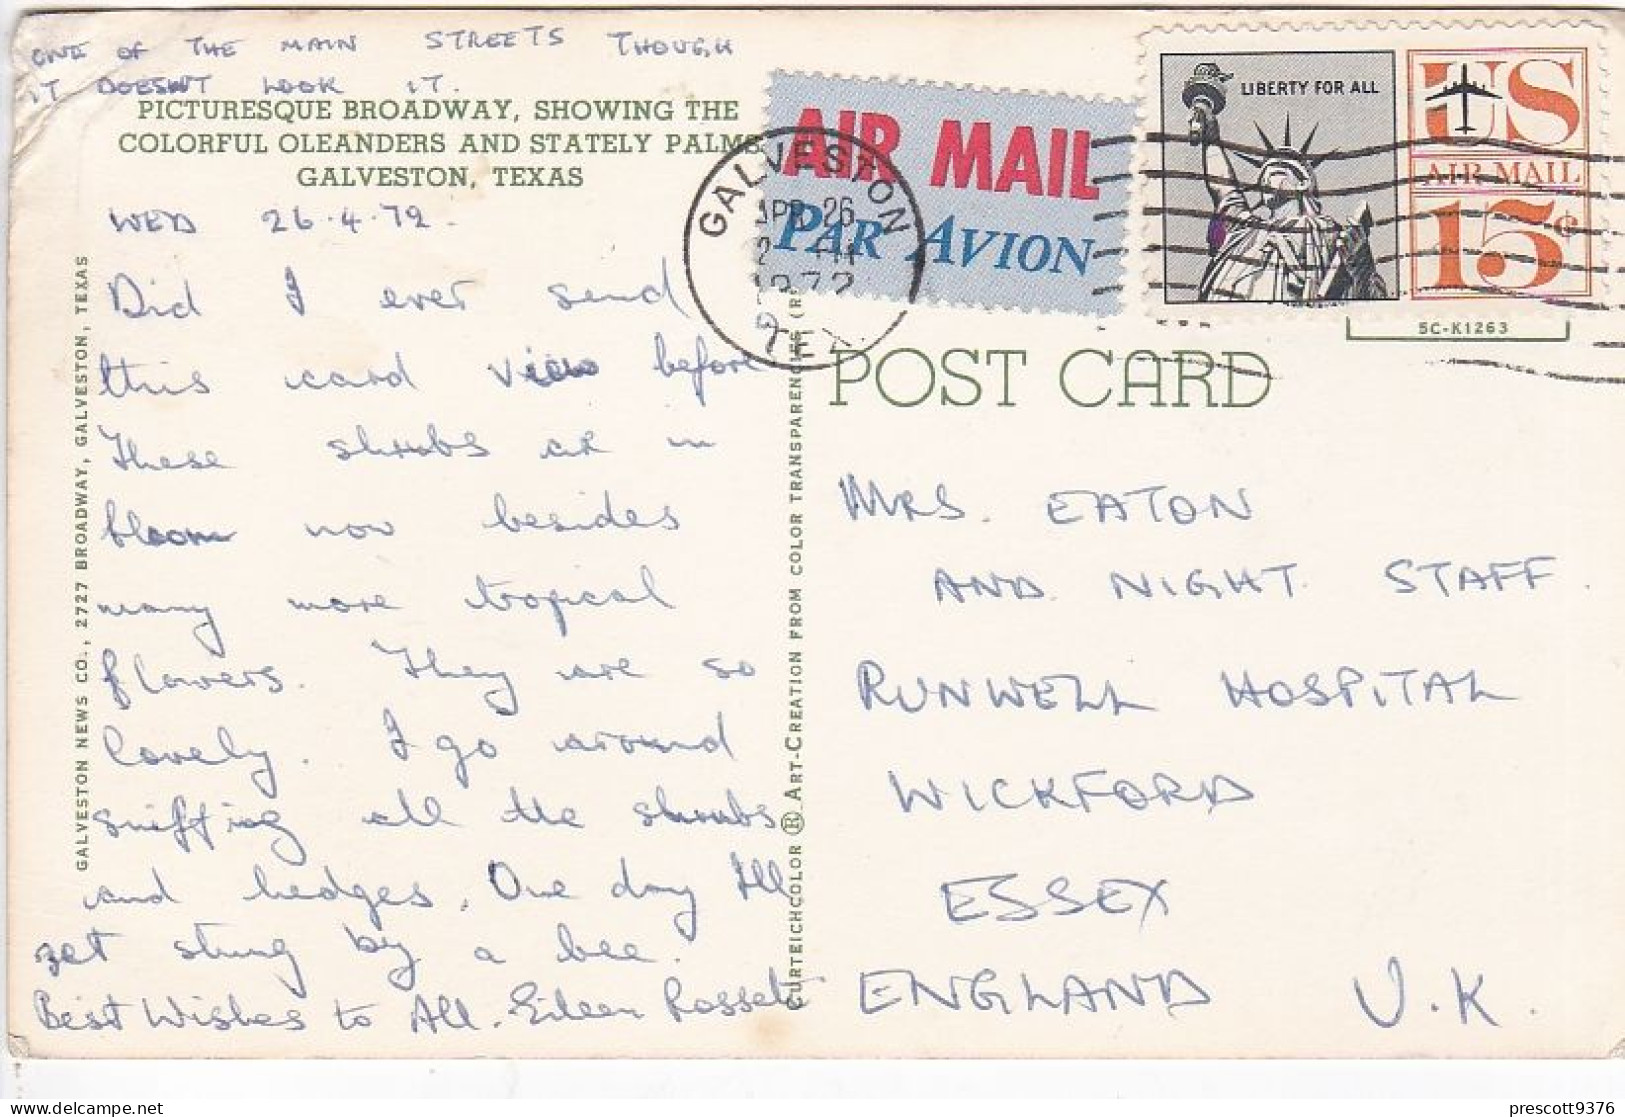 ONE OF THE MAIN STREETS THOUGH
IT DOESN'T LOOK IT.
PICTURESQUE BROADWAY, SHOWING THE
COLORFUL OLEANDERS AND STATELY PALMS
GALVESTON, TEXAS
WED 26.4.72.
Did I ever send
this card view before
These shrubs are in
bloom now besides
many more tropical
flowers. They are so
lovely. I go around
sniffing all the shrubs
and hedges. One day I'll
get stung by a bee.
Best Wishes to All. Eileen
GALVESTON NEWS CO., 2727 BROADWAY, GALVESTON, TEXAS
CURTEICHCOLOR ® ART-CREATION FROM COLOR TRANSPARENCIES
AIR MAIL
PAR AVION
GALVESTON
APR 26
1972
TEX
LIBERTY FOR ALL
US
AIR MAIL
15¢
5C-K1263
POST CARD
MRS. EATON
AND NIGHT STAFF.
RUNWELL HOSPITAL
WICKFORD
ESSEX
ENGLAND U.K.
prescott9376